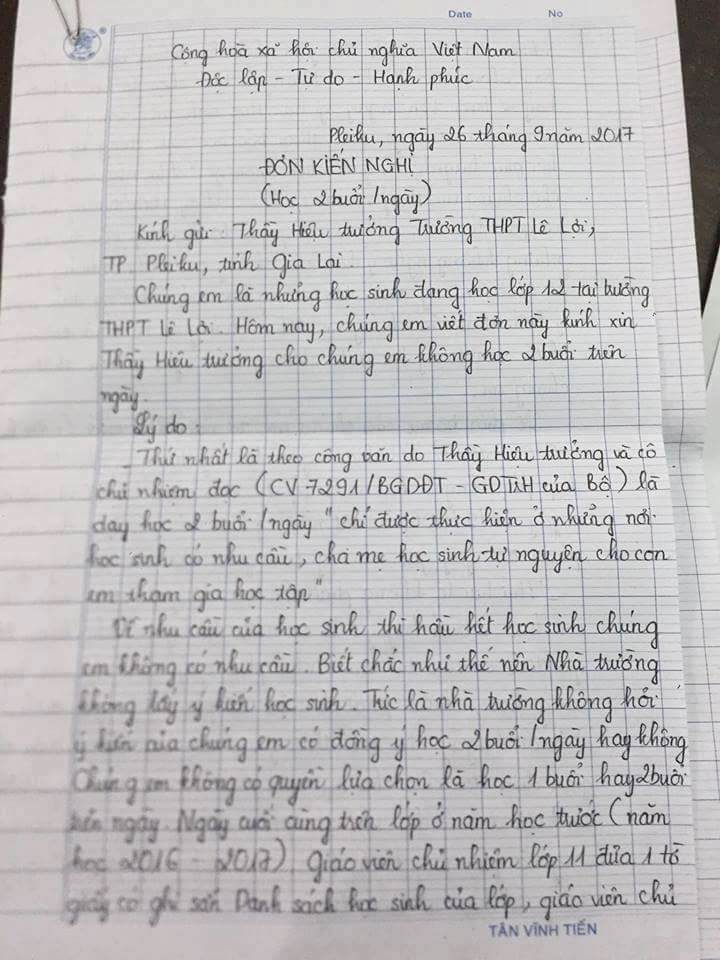 Date No
Cộng hoà xã hội chủ nghĩa Việt Nam
Độc lập - Tự do - Hạnh phúc
Pleiku, ngày 26 tháng 9 năm 2017
ĐƠN KIẾN NGHỊ
(Học 2 buổi/ngày)
Kính gửi: Thầy Hiệu trưởng Trường THPT Lê Lợi,
TP Pleiku, tỉnh Gia Lai.
Chúng em là những học sinh đang học lớp 12 tại trường
THPT Lê Lợi. Hôm nay, chúng em viết đơn này kính xin
Thầy Hiệu trưởng cho chúng em không học 2 buổi trên
ngày.
Lý do:
- Thứ nhất là theo công văn do Thầy Hiệu trưởng và cô
chủ nhiệm đọc (CV 7291/BGDĐT - GDTrH của Bộ) là
dạy học 2 buổi/ngày "chỉ được thực hiện ở những nơi
học sinh có nhu cầu, cha mẹ học sinh tự nguyện cho con
em tham gia học tập"
Về nhu cầu của học sinh thì hầu hết học sinh chúng
em không có nhu cầu. Biết chắc như thế nên Nhà trường
không lấy ý kiến học sinh. Tức là nhà trường không hỏi
ý kiến của chúng em có đồng ý học 2 buổi/ngày hay không
Chúng em không có quyền lựa chọn là học 1 buổi hay 2 buổi
trên ngày. Ngày cuối cùng trên lớp ở năm học trước (năm
học 2016 - 2017) Giáo viên chủ nhiệm lớp 11 đưa 1 tờ
giấy có ghi sẵn Danh sách học sinh của lớp, giáo viên chủ
TÂN VĨNH TIẾN